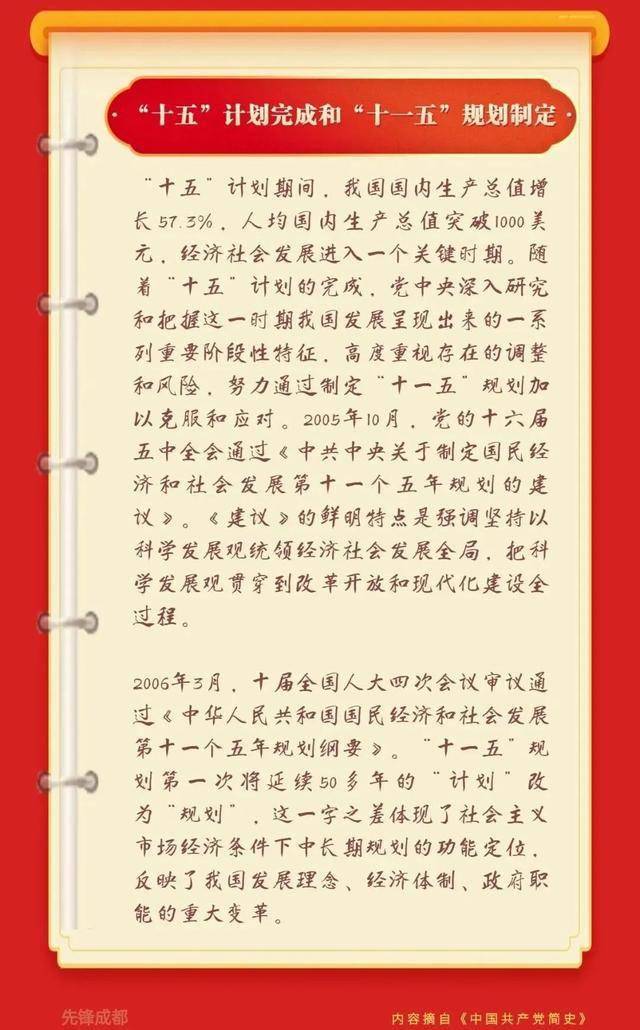 “十五”计划完成和“十一五”规划制定
“十五”计划期间，我国国内生产总值增
长57.3%，人均国内生产总值突破1000美
元，经济社会发展进入一个关键时期。随
着“十五”计划的完成，党中央深入研究
和把握这一时期我国发展呈现出来的一系
列重要阶段性特征，高度重视存在的调整
和风险，努力通过制定“十一五”规划加
以克服和应对。2005年10月，党的十六届
五中全会通过《中共中央关于制定国民经
济和社会发展第十一个五年规划的建
议》。《建议》的鲜明特点是强调坚持以
科学发展观统领经济社会发展全局，把科
学发展观贯穿到改革开放和现代化建设全
过程。
2006年3月，十届全国人大四次会议审议通
过《中华人民共和国国民经济和社会发展
第十一个五年规划纲要》。“十一五”规
划第一次将延续50多年的“计划”改
为“规划”，这一字之差体现了社会主义
市场经济条件下中长期规划的功能定位，
反映了我国发展理念、经济体制、政府职
能的重大变革。
先锋成都
内容摘自《中国共产党简史》